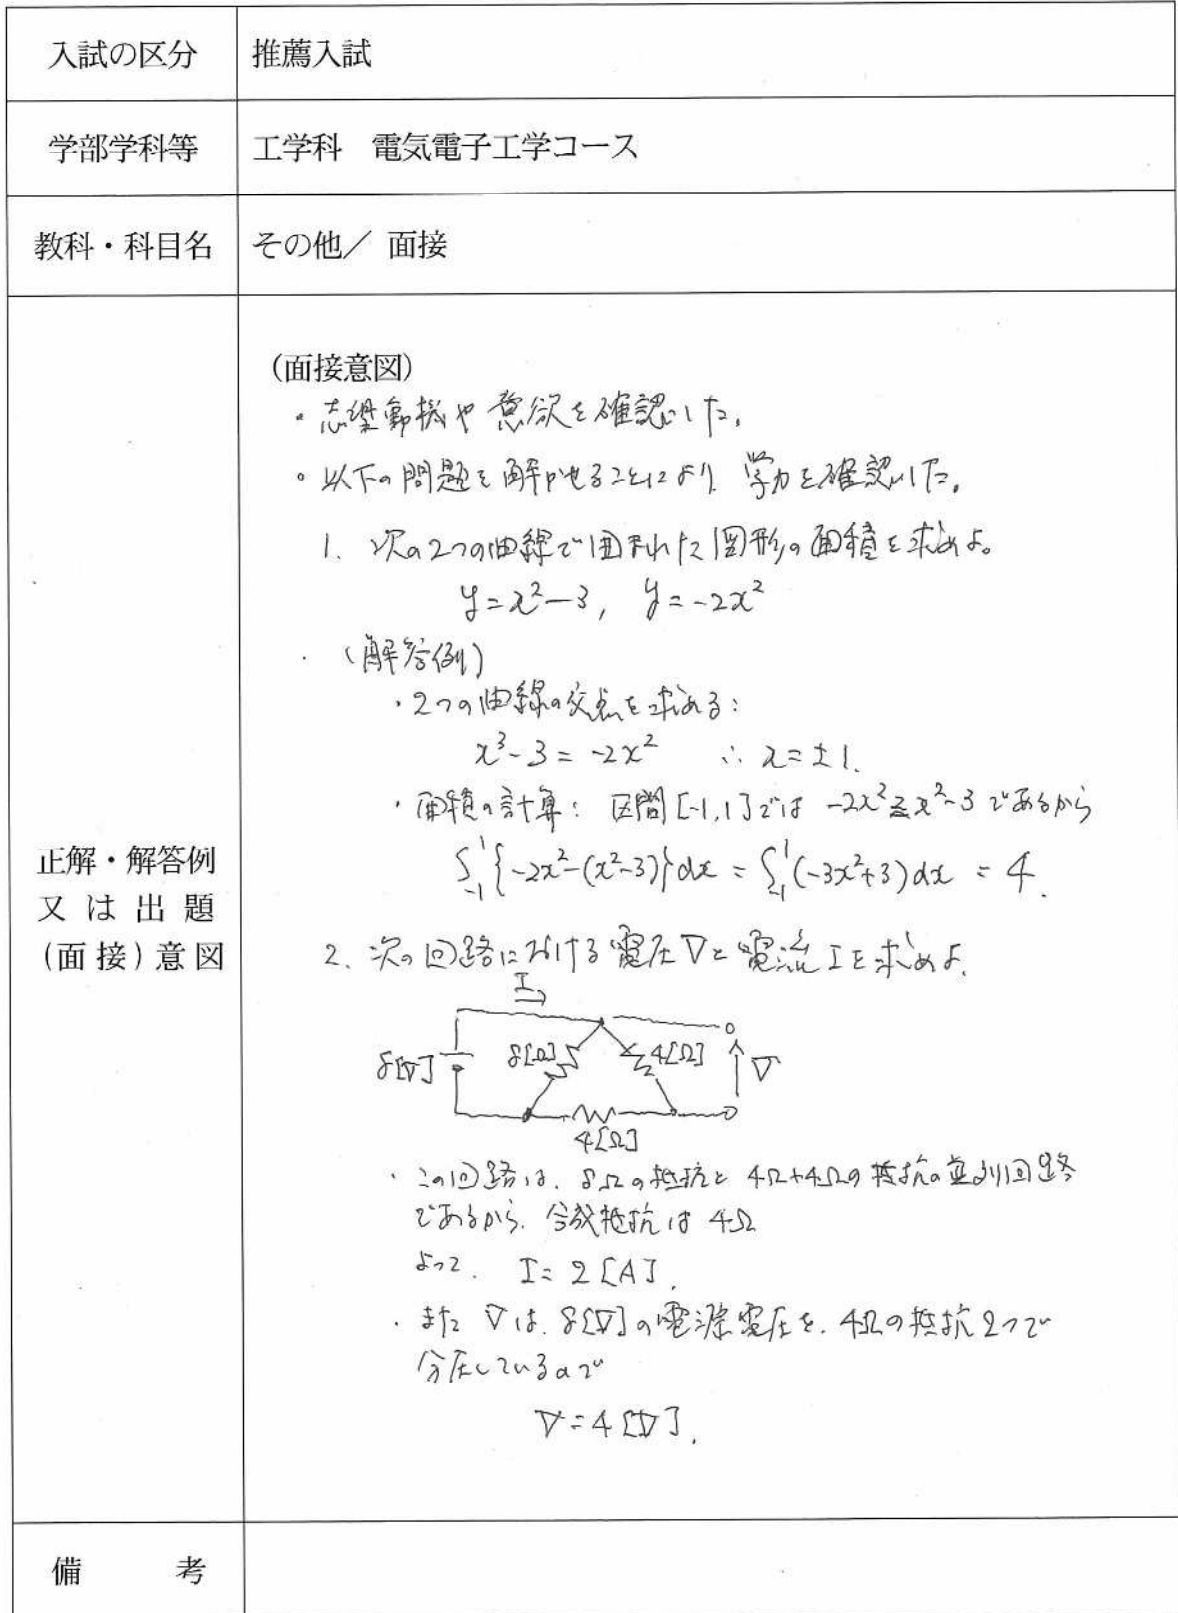 入試の区分
推薦入試
学部学科等
工学科 電気電子工学コース
教科・科目名
その他／ 面接
正解・解答例
又は出題
(面接)意図
(面接意図)
・志望動機や意欲を確認した。
・以下の問題を解かせることにより、学力を確認した。
1. 次の2つの曲線で囲まれた図形の面積を求めよ。
y=x²-3, y=-2x²
(解答例)
・2つの曲線の交点を求める:
x³-3=-2x² ∴ x=±1.
・面積の計算: 区間[-1,1]では -2x²≧x²-3 であるから
∫₋₁¹{-2x²-(x²-3)}dx = ∫₋₁¹(-3x²+3)dx = 4.
2. 次の回路における電圧Vと電流Iを求めよ.
I
8[V]
8[Ω]
4[Ω]
V
4[Ω]
・この回路は、8Ωの抵抗と 4Ω+4Ωの抵抗の並列回路
であるから、合成抵抗は 4Ω
よって、 I=2[A].
・また Vは、8[V]の電源電圧を、4Ωの抵抗2つで
分圧しているので
V=4[V].
備 考